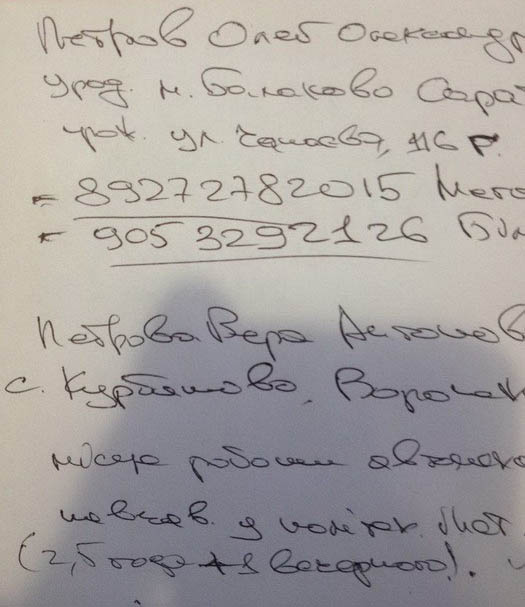 Петров Олег Олександр
урод. м. Балаково Сарат
прож. ул. Чапаєва, 116 Г.
- 89272782015 Мега
- 9053292126 Біл
Петрова Вера Антонов
с. Курбатово, Воронеж
місце роботи
навчав. у политех.
(2,5 года + 1 вечернего).